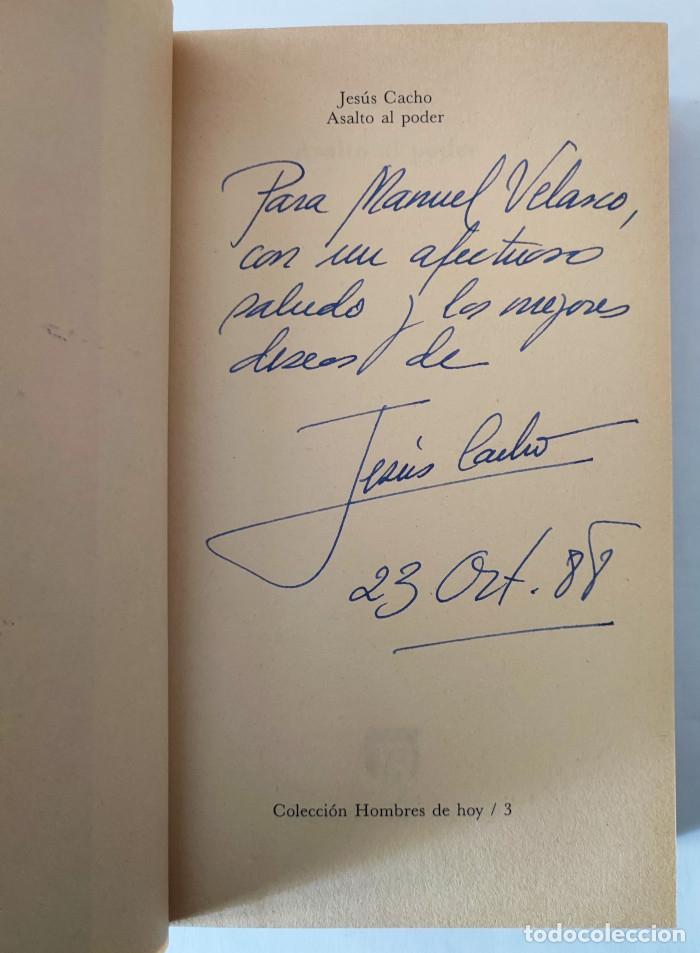 Jesús Cacho
Asalto al poder
Para Manuel Velasco,
con un afectuoso
saludo y los mejores
deseos de
Jesús Cacho
23 Oct. 88
Colección Hombres de hoy / 3
todocoleccion